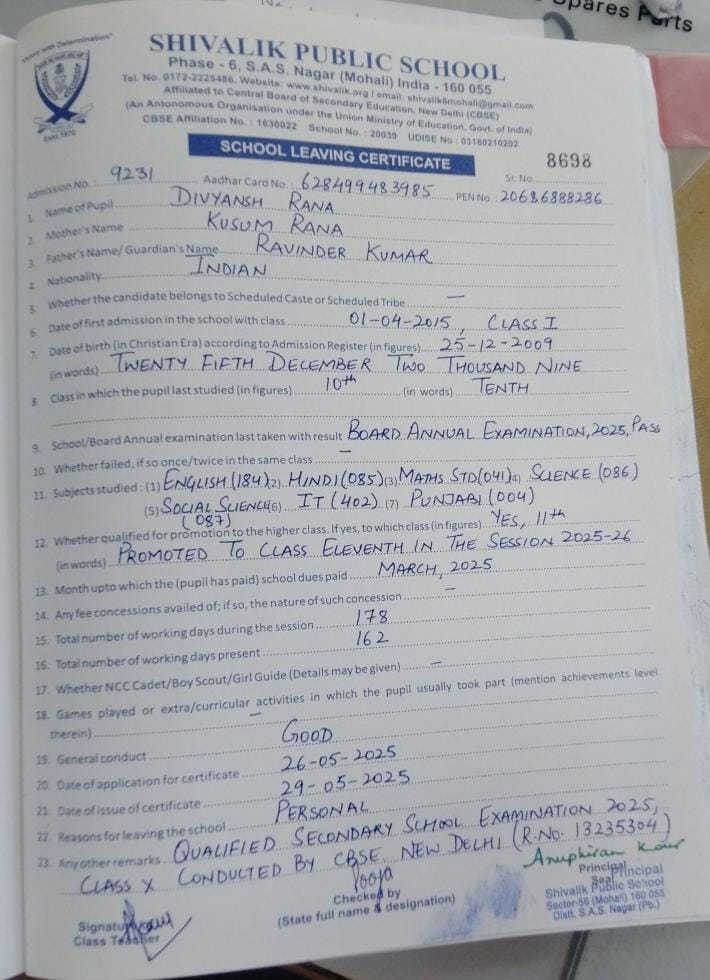 Spares Parts
SHIVALIK PUBLIC SCHOOL
Phase - 6, S.A.S. Nagar (Mohali) India - 160 055
Tel. No. 0172-2225486, Website: www.shivalik.org / email: shivalik6mohali@gmail.com
Affiliated to Central Board of Secondary Education, New Delhi (CBSE)
(An Antonomous Organisation under the Union Ministry of Education, Govt. of India)
CBSE Affiliation No. : 1630022 School No. : 20039 UDISE No : 03180210202
SCHOOL LEAVING CERTIFICATE
Sr. No. 8698
Admission No. : 9231 Aadhar Card No. : 628499483985 PEN No. : 20686888286
1. Name of Pupil DIVYANSH RANA
2. Mother's Name KUSUM RANA
3. Father's Name/ Guardian's Name RAVINDER KUMAR
4. Nationality INDIAN
5. Whether the candidate belongs to Scheduled Caste or Scheduled Tribe —
6. Date of first admission in the school with class 01-04-2015, CLASS I
7. Date of birth (in Christian Era) according to Admission Register (in figures) 25-12-2009
(in words) TWENTY FIFTH DECEMBER TWO THOUSAND NINE
8. Class in which the pupil last studied (in figures) 10th (in words) TENTH
9. School/Board Annual examination last taken with result BOARD ANNUAL EXAMINATION, 2025, PASS
10. Whether failed, if so once/twice in the same class —
11. Subjects studied : (1) ENGLISH (184) (2) HINDI (085) (3) MATHS STD (041) (4) SCIENCE (086)
(5) SOCIAL SCIENCE (6) IT (402) (7) PUNJABI (004)
(087)
12. Whether qualified for promotion to the higher class. If yes, to which class (in figures) YES, 11th
(in words) PROMOTED TO CLASS ELEVENTH IN THE SESSION 2025-26
13. Month upto which the (pupil has paid) school dues paid MARCH, 2025
14. Any fee concessions availed of; if so, the nature of such concession —
15. Total number of working days during the session 178
16. Total number of working days present 162
17. Whether NCC Cadet/Boy Scout/Girl Guide (Details may be given) —
18. Games played or extra/curricular activities in which the pupil usually took part (mention achievements level
therein) —
19. General conduct GOOD
20. Date of application for certificate 26-05-2025
21. Date of issue of certificate 29-05-2025
22. Reasons for leaving the school PERSONAL
23. Any other remarks QUALIFIED SECONDARY SCHOOL EXAMINATION 2025,
CLASS X CONDUCTED BY CBSE, NEW DELHI (R.NO. 13235304)
Anuphiran Kaur
Pooja
Signature
Class Teacher
Checked by
(State full name & designation)
Principal
Seal
Principal
Shivalik Public School
Sector-56 (Mohali) 160 055
Distt. S.A.S. Nagar (Pb.)